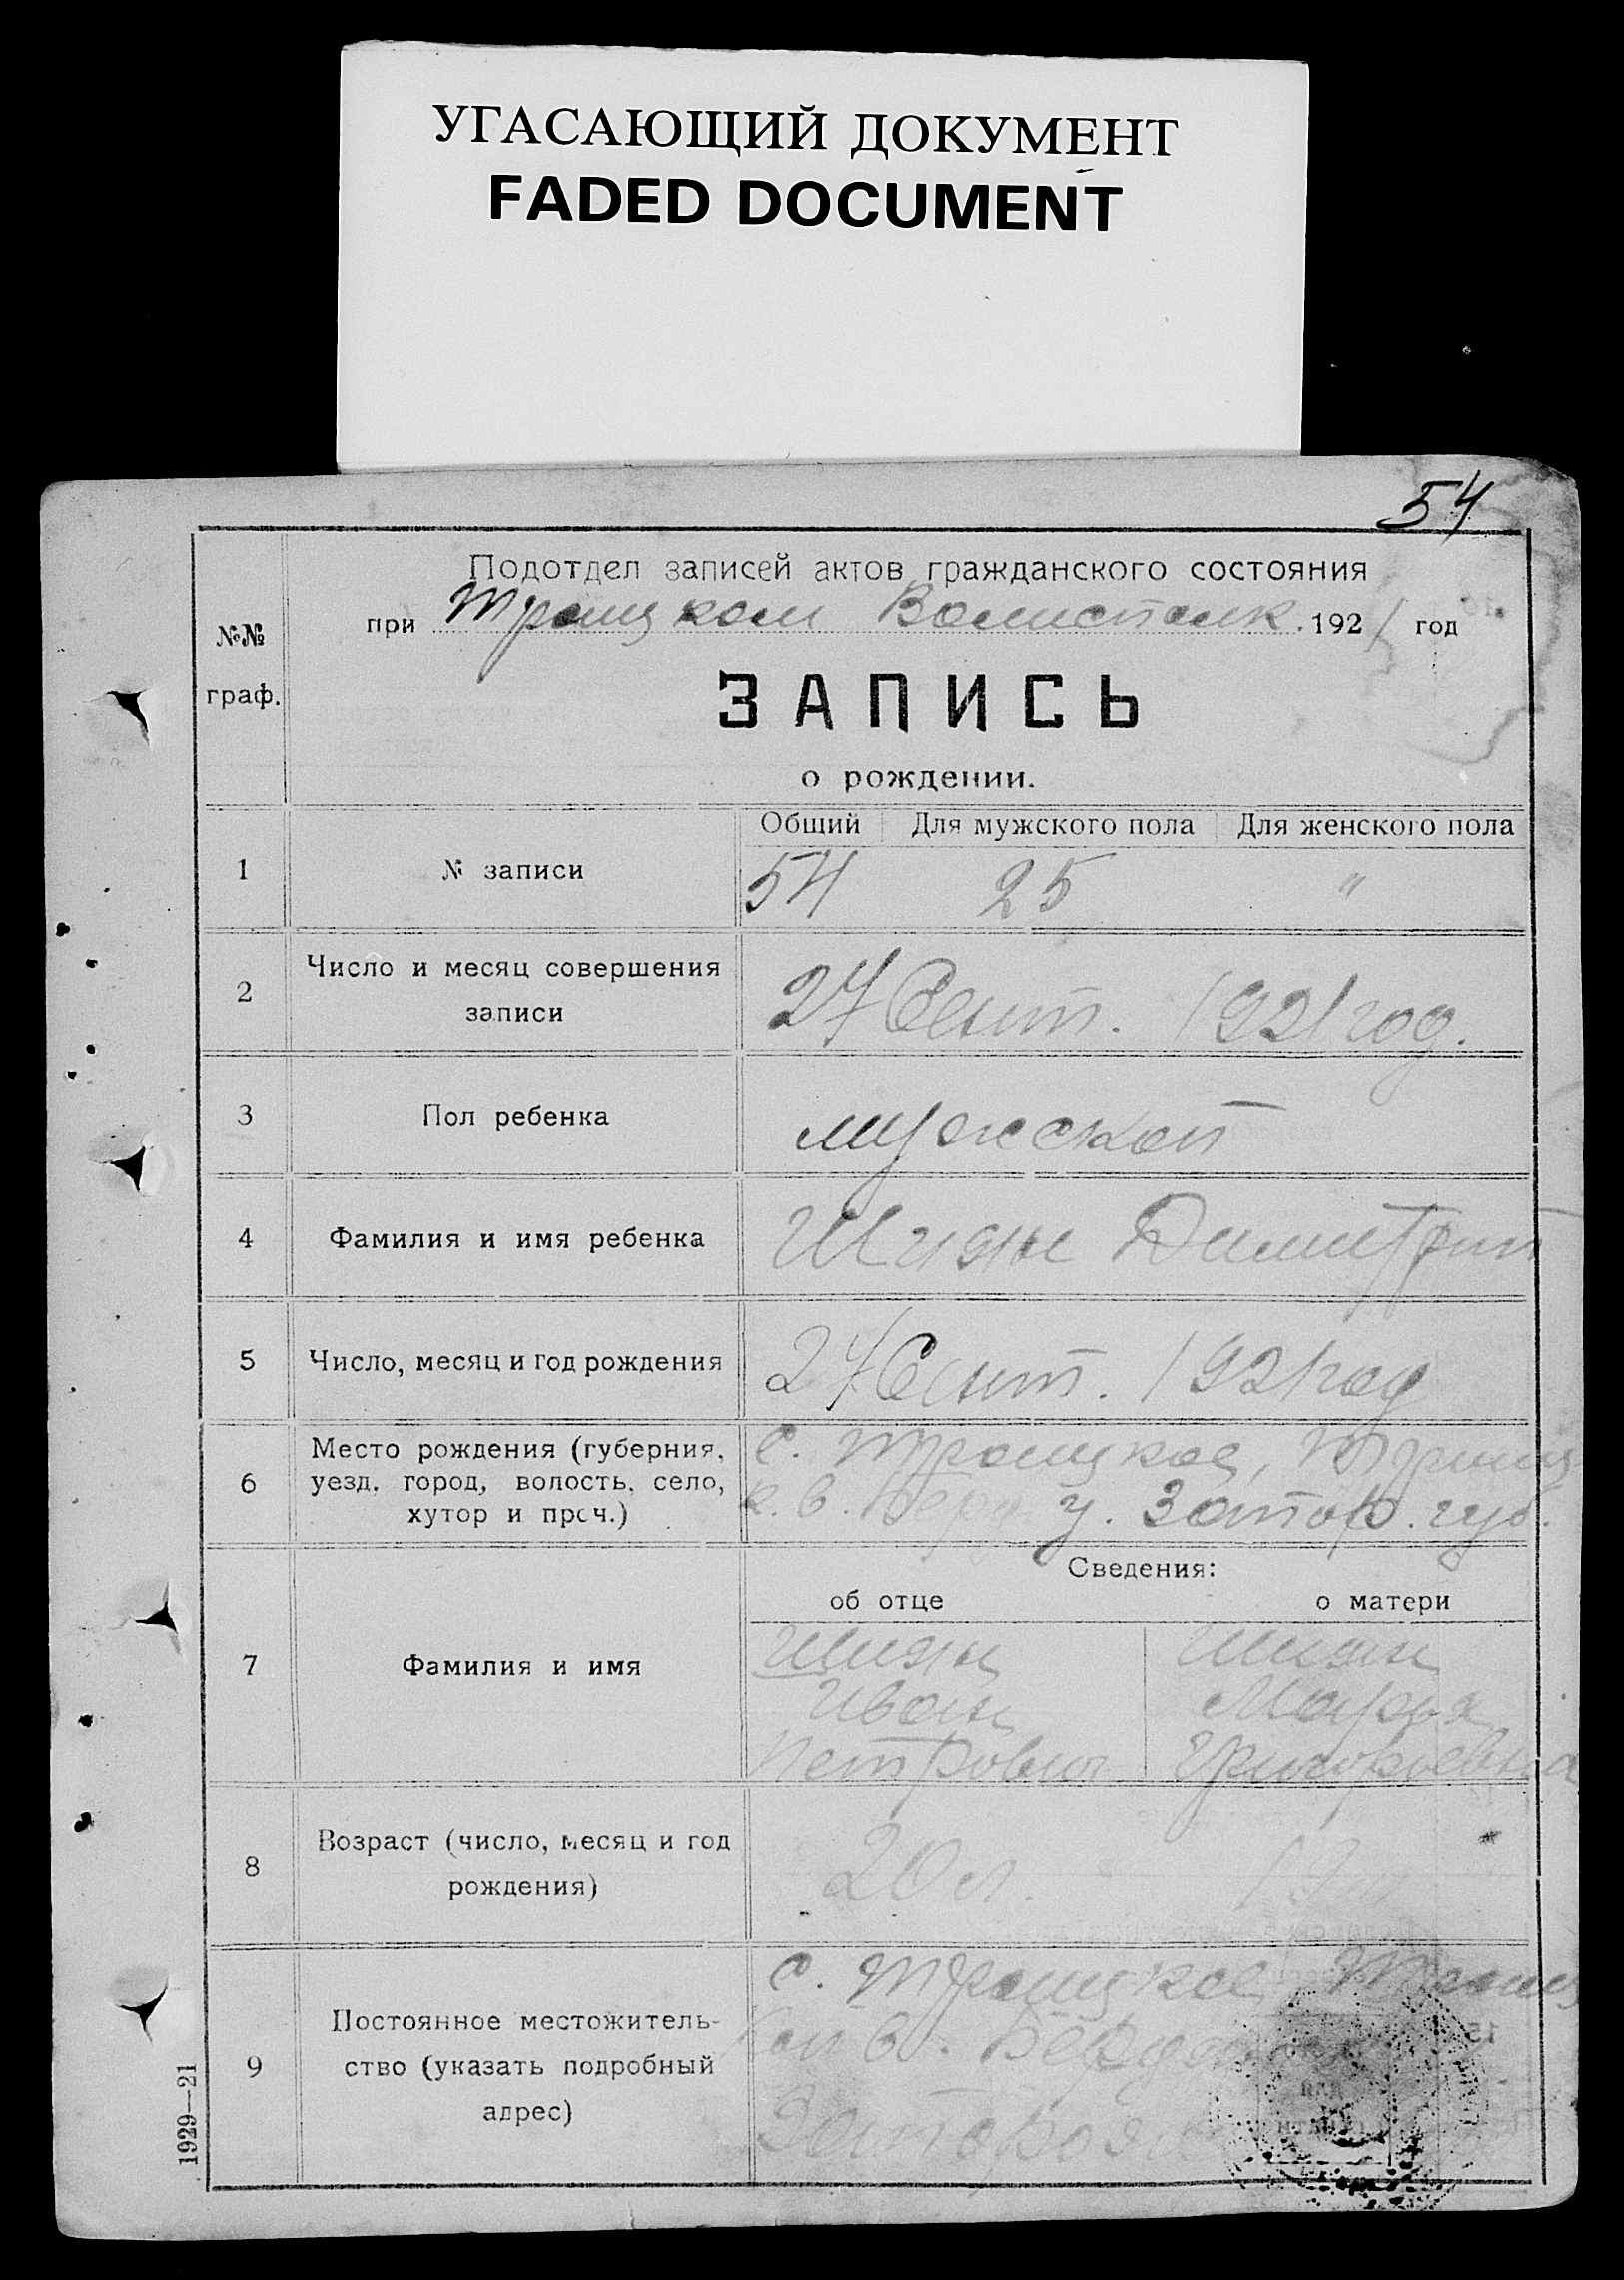 УГАСАЮЩИЙ ДОКУМЕНТ
FADED DOCUMENT
54
Подотдел записей актов гражданского состояния
№№ граф.
при Троицком Волисполк. 1921 год
ЗАПИСЬ
о рождении.
Общий Для мужского пола Для женского пола
1 № записи 54 25 "
2 Число и месяц совершения
записи
27 Сент. 1921 год.
3 Пол ребенка мужской
4 Фамилия и имя ребенка Шиян Димитрий
5 Число, месяц и год рождения 27 Сент. 1921 год
6 Место рождения (губерния,
уезд, город, волость, село,
хутор и проч.)
с. Троицкое, Троиц
к. в. Берд у. Запор. губ.
Сведения:
об отце о матери
7 Фамилия и имя
Шиян Шиян
Иван Марья
Петрович Григорьевна
8 Возраст (число, месяц и год
рождения)
20 л.
9 Постоянное местожитель-
ство (указать подробный
адрес)
с. Троицкое Троиц
кой в. Бердян
Запорож
1929—21